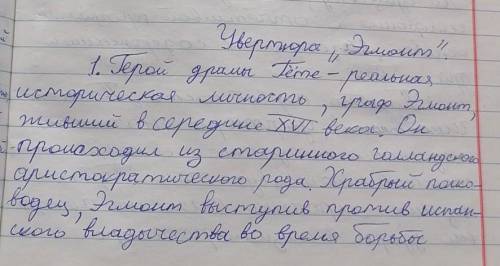 Увертюра „Эгмонт".
1. Герой драмы Гёте - реальная
историческая личность, граф Эгмонт,
живший в середине XVI века. Он
происходил из старинного голландского
аристократического рода. Храбрый полко-
водец, Эгмонт выступив против испан-
ского владычества во время борьбы